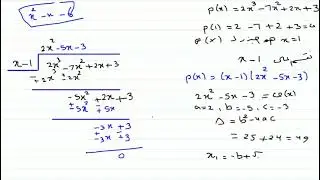 x² - x - 6
2x² - 5x - 3
x - 1
2x³ - 7x² + 2x + 3
∓2x³ ± 2x²
- 5x² + 2x + 3
± 5x² ∓ 5x
- 3x + 3
± 3x ∓ 3
0
p(x) = 2x³ - 7x² + 2x + 3
p(1) = 2 - 7 + 2 + 3 = 0
p(x) x = 1
x - 1
p(x) = (x - 1)(2x² - 5x - 3)
2x² - 5x - 3 =
a = 2, b = -5, c = -3
Δ = b² - 4ac
= 25 + 24 = 49
x₁ = -b + √